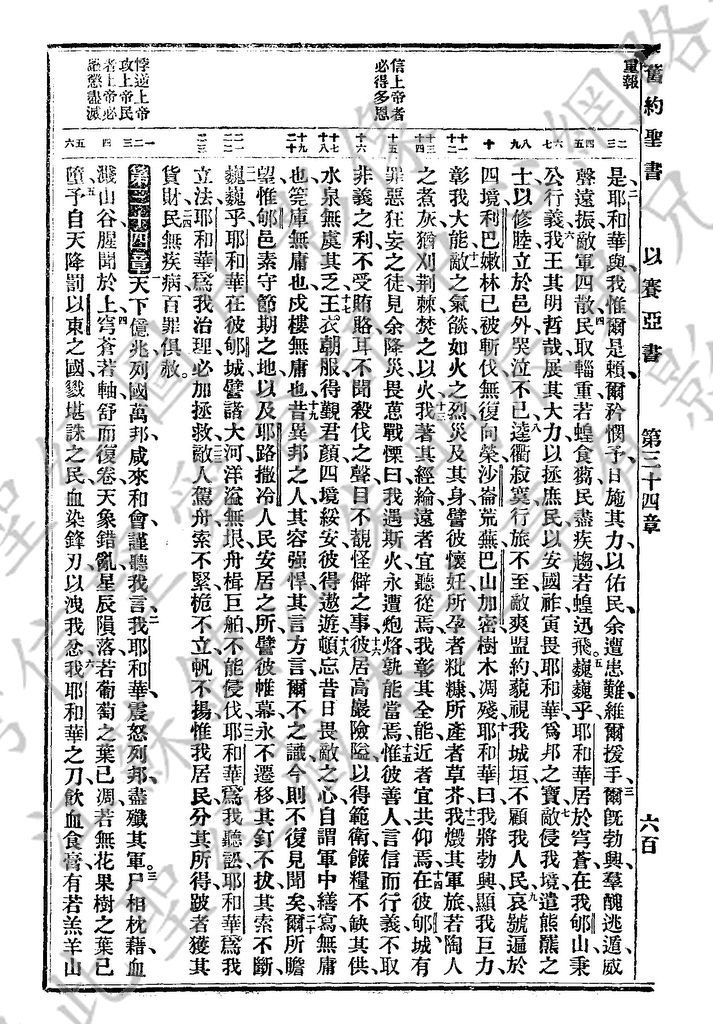 舊約聖書 以賽亞書 第三十四章 六百
重報
信上帝者
必得多恩
悖逆上帝
攻上帝民
者上帝必
懲盡滅
是耶和華與我惟爾是賴爾矜憫予日施其力以佑民余遭患難維爾援手爾旣勃興羣醜逃遁威
聲遠振敵軍四散民取輜重若蝗食蒭民盡疾趨若蝗迅飛巍巍乎耶和華居於穹蒼在我郇山秉
公行義我王其明哲哉展其大力以拯庶民以安國祚寅畏耶和華爲邦之寶敵侵我境遣熊羆之
士以修陸立於邑外哭泣不已逵衢寂寞行旅不至敵爽盟約藐視我城垣不顧我人民哀號遍於
四境利巴嫩林已被斬伐無復向榮沙崙荒蕪巴山加密樹木凋殘耶和華曰我將勃興顯我巨力
彰我大能敵之氣燄如火之烈災及其身譬彼懷妊所孕者粃糠所產者草芥我燬其軍旅若陶人
之煮灰猶刈荆棘焚之以火我著其經綸遠者宜聽從焉我彰其全能近者宜共仰焉在彼郇城有
罪惡狂妄之徒見余降災畏葸戰慄曰我遇斯火永遭炮烙孰能當焉惟彼善人言信而行義不取
非義之利不受賄賂耳不聞殺伐之聲目不覩怪僻之事彼居高巖險隘以得範衛餱糧不缺其供
水泉無虞其乏王衣朝服得覲君顏四境綏安彼得遨遊頓忘昔日畏敵之心自謂軍中繕寫無庸
也筦庫無庸也戍樓無庸也昔異邦之人其容強悍其言方言爾不之識今則不復見聞矣爾所瞻
望惟郇邑素守節期之地以及耶路撒冷人民安居之所譬彼帷幕永不遷移其釘不拔其索不斷
巍巍乎耶和華在彼郇城譬諸大河洋溢無垠舟楫巨舶不能侵伐耶和華爲我聽訟耶和華爲我
立法耶和華爲我治理必加拯救敵人駕舟索不緊桅不立帆不揚惟我居民分其所得跛者獲其
貨財民無疾病百罪俱赦
第三十四章天下億兆列國萬邦咸來和會謹聽我言我耶和華震怒列邦盡殲其軍尸相枕藉血
濺山谷腥聞於上穹蒼若軸舒而復卷天象錯亂星辰隕落若葡萄之葉已凋若無花果樹之葉已
墮予自天降罰以東之國戮堪誅之民血染鋒刃以洩我忿我耶和華之刀飲血食膏有若羔羊山